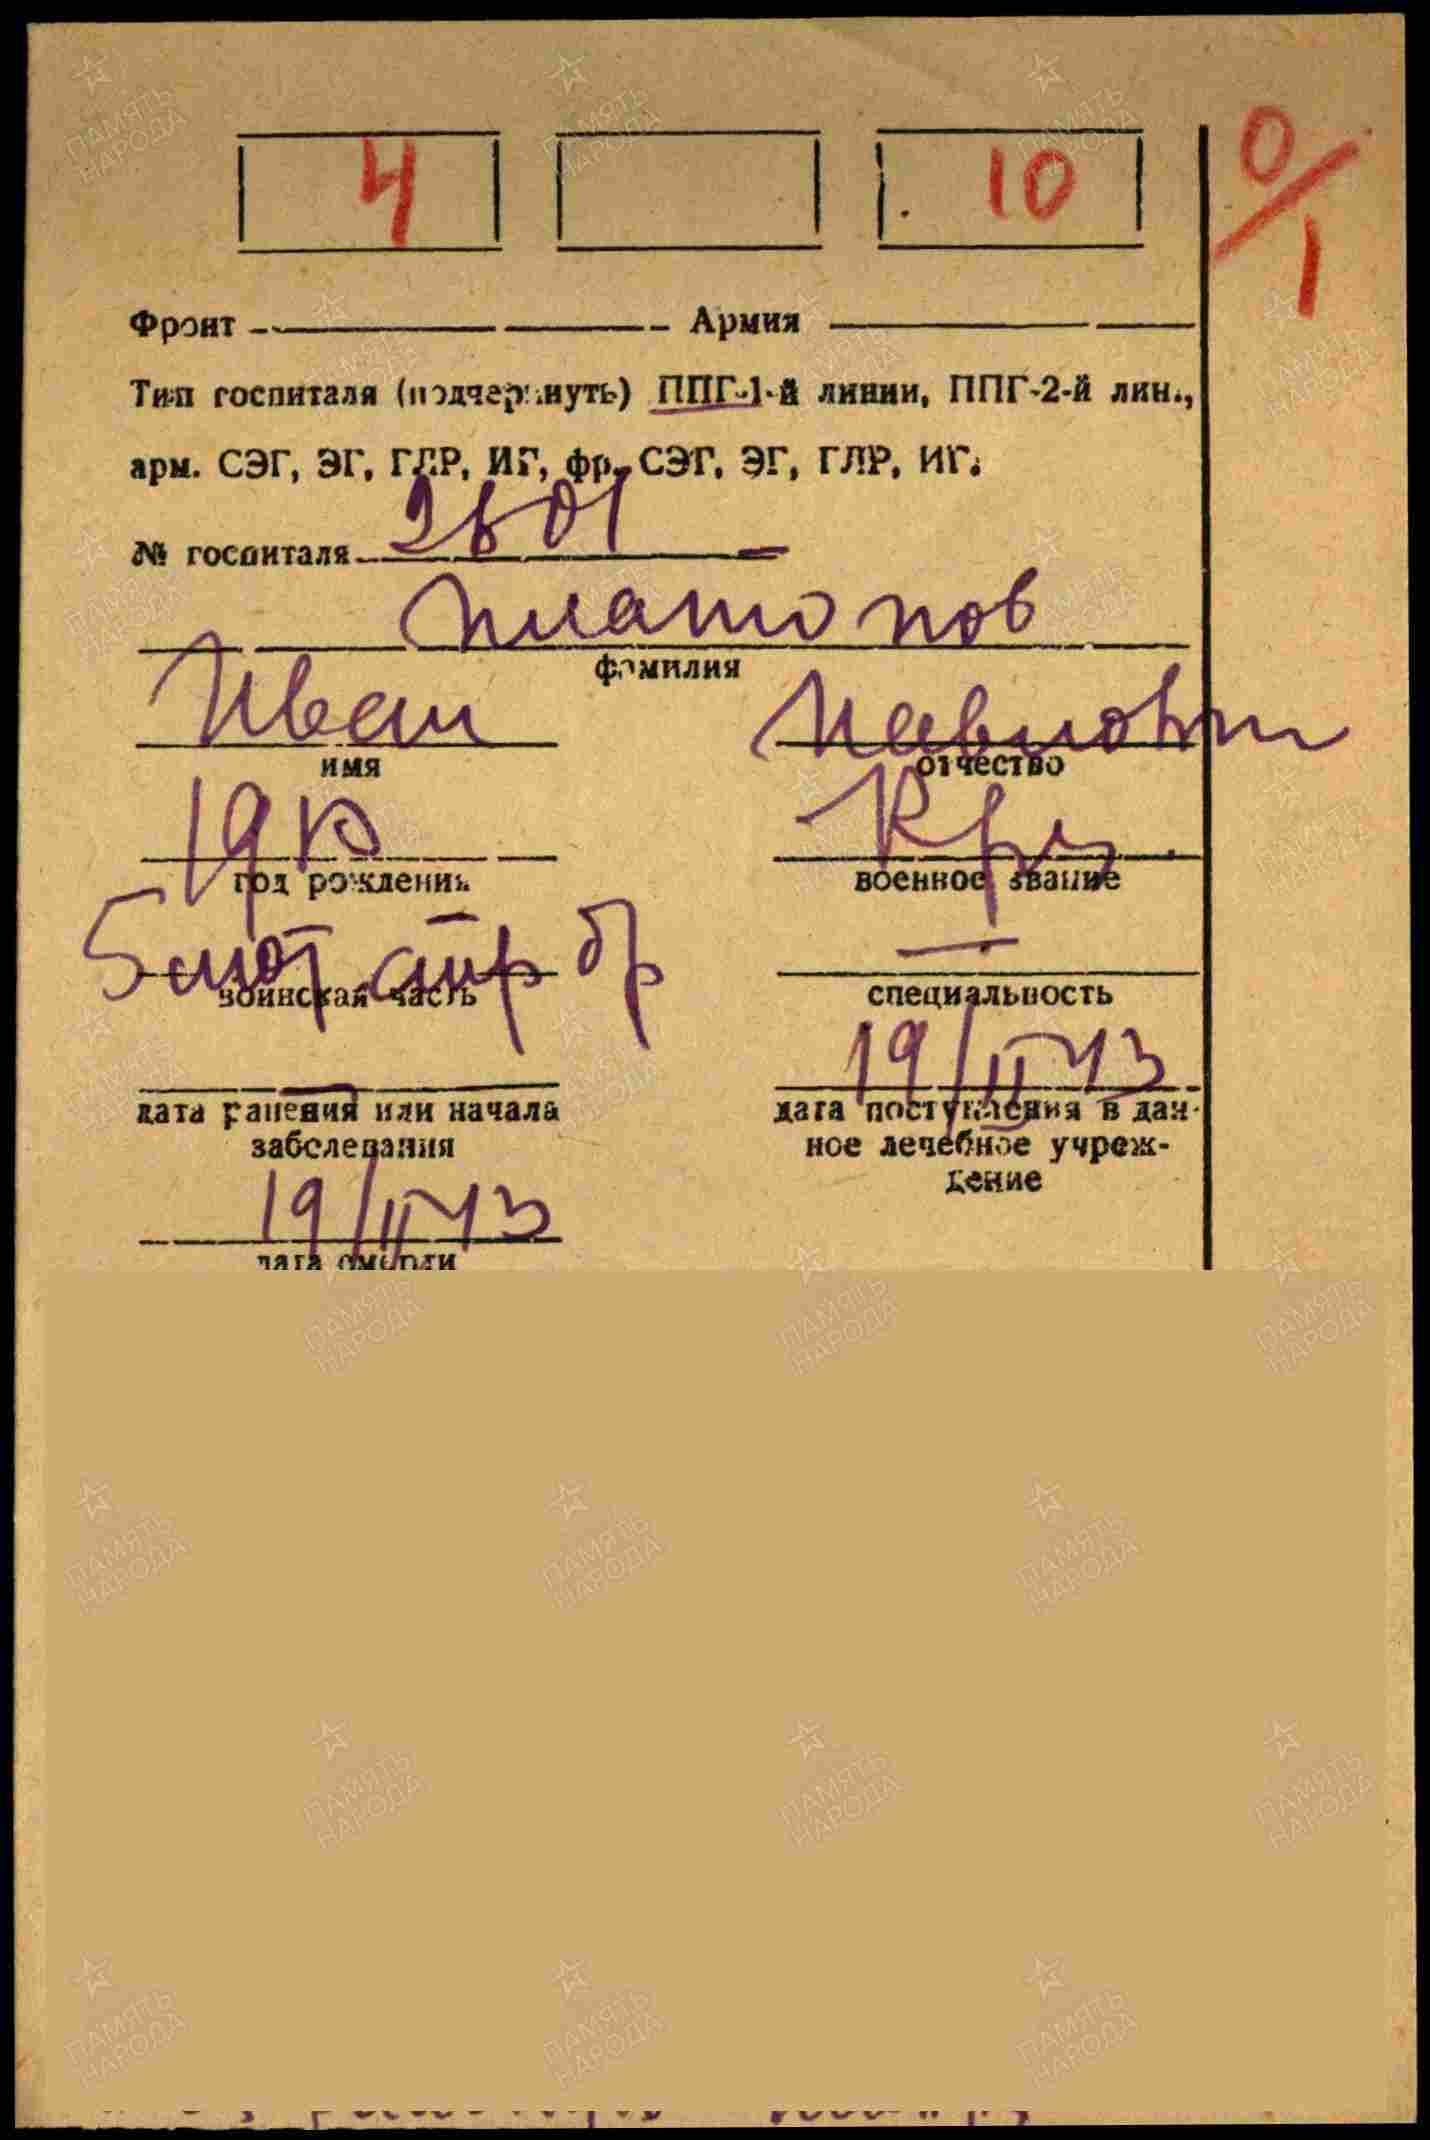 4 10 0/1
Фронт Армия
Тип госпиталя (подчеркнуть) ППГ-1-й линии, ППГ-2-й лин.,
арм. СЭГ, ЭГ, ГЛР, ИГ, фр. СЭГ, ЭГ, ГЛР, ИГ.
№ госпиталя
Платонов
фамилия
Иван Павлович
имя отчество
1910 Кр-ц
год рождения военное звание
5 отд. стр бр
воинская часть специальность
19/II-43
дата ранения или начала заболевания
дата поступления в данное лечебное учреждение
19/II-43
дата смерти
ПАМЯТЬ НАРОДА